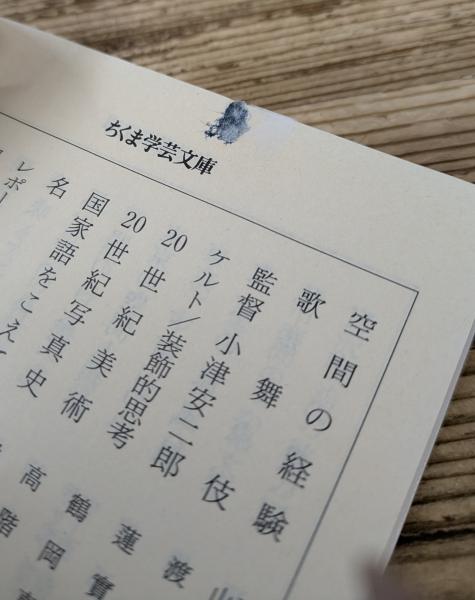 ちくま学芸文庫
空間の経験
歌舞伎 渡
監督 小津安二郎 蓮實
ケルト/装飾的思考 鶴岡
20世紀美術 高階
20世紀写真史
国家語をこえて
名
レポー